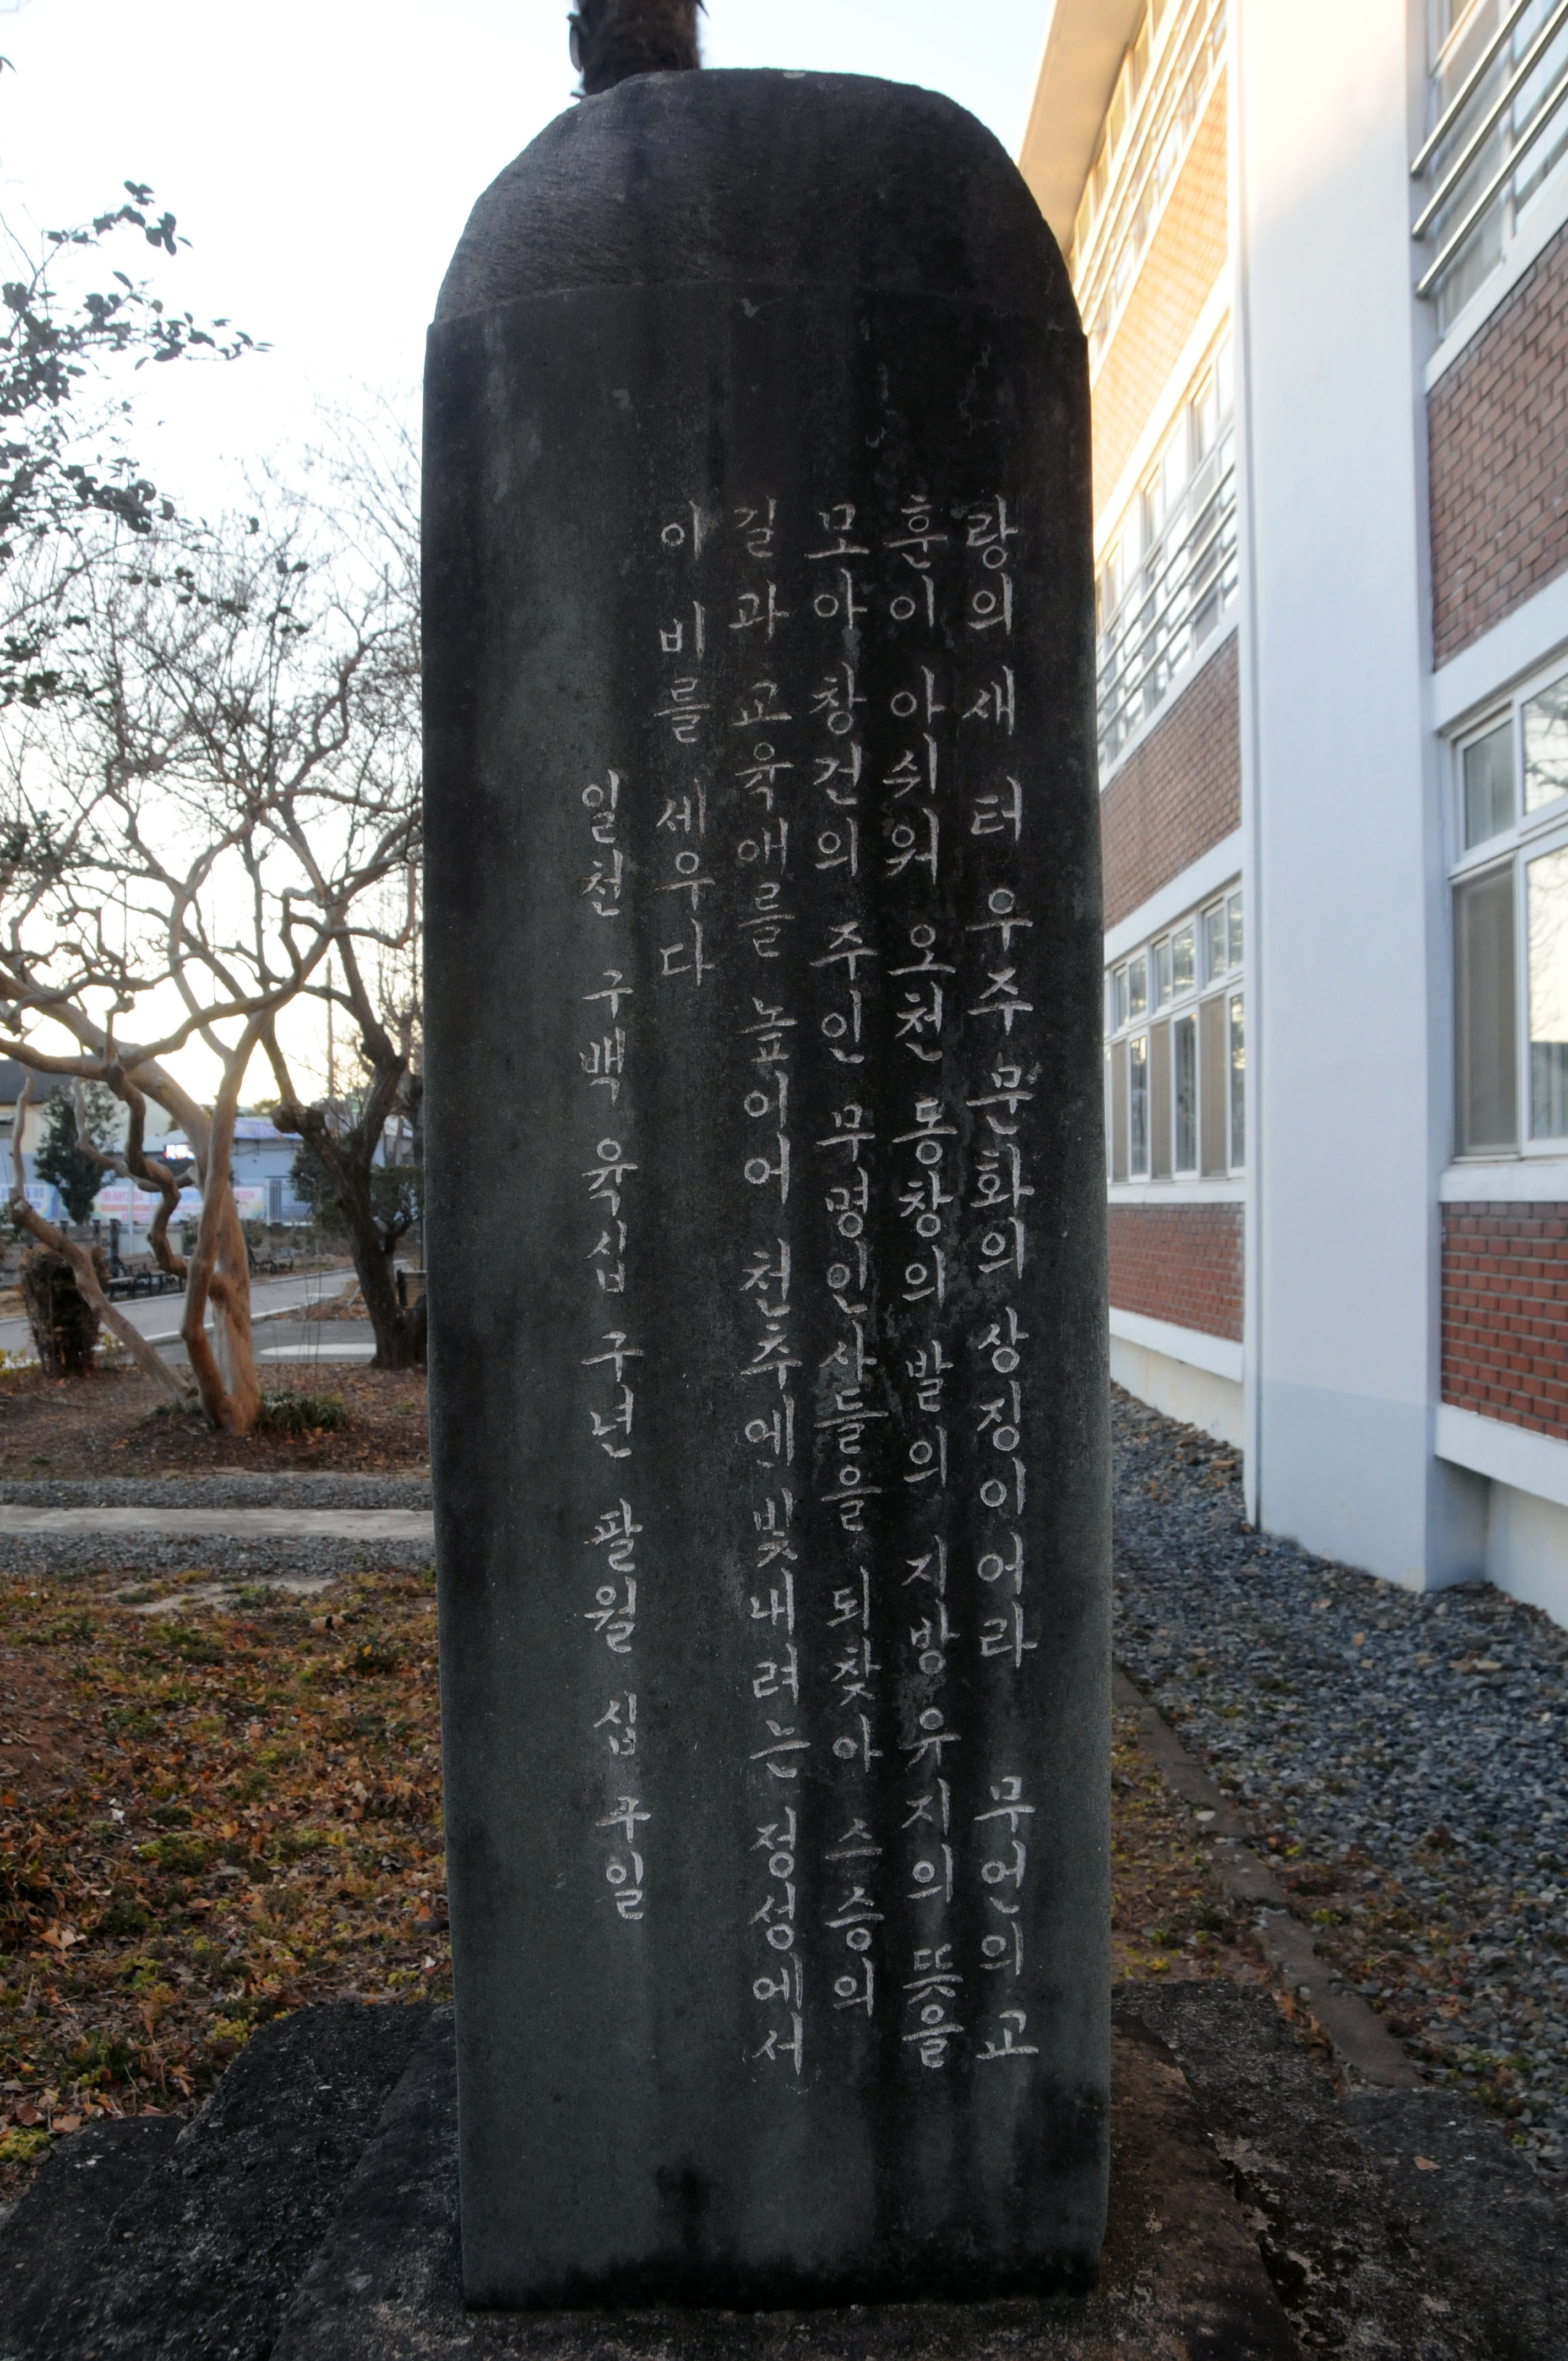 랑의 새 터 우주 문화의 상징이어라 무언의 교
훈이 아쉬워 오천 동창의 발의 지방유지의 뜻을
모아 창건의 주인 무명인사들을 되찾아 스승의
길과 교육애를 높이어 천추에 빛내려는 정성에서
이 비를 세우다
일천 구백 육십 구년 팔월 십 구일